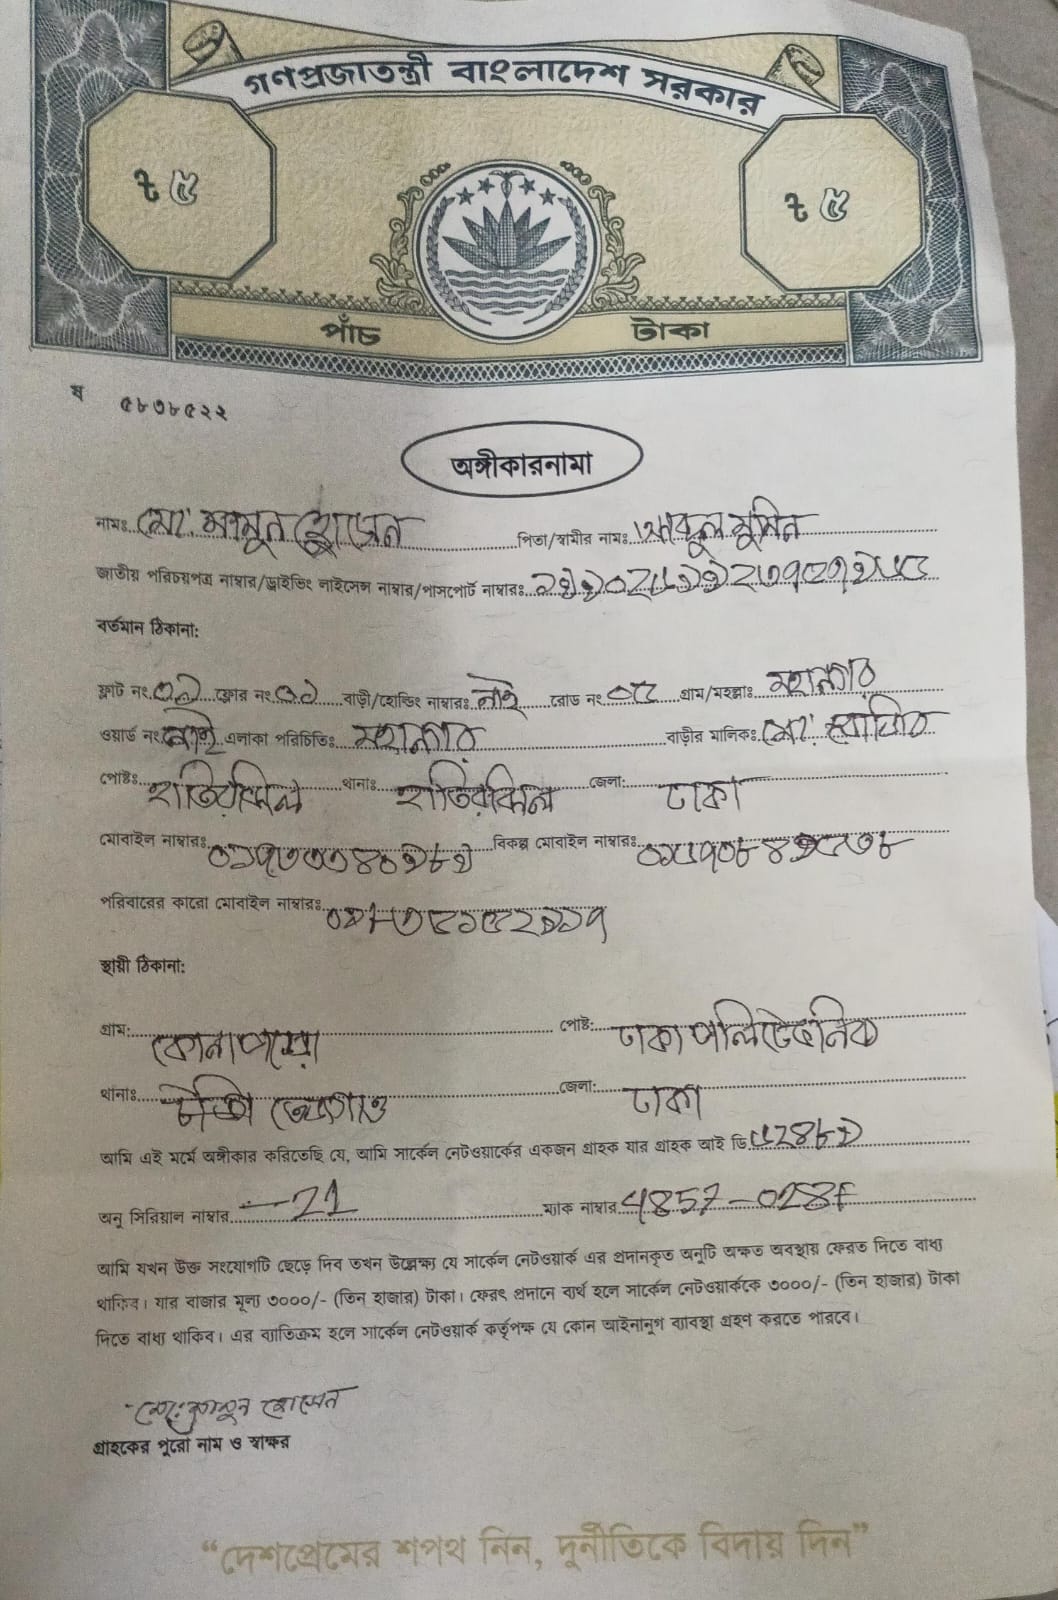 গণপ্রজাতন্ত্রী বাংলাদেশ সরকার
৳ ৫ ৳ ৫
পাঁচ টাকা
ষ ৫৮৩৮৫২২
অঙ্গীকারনামা
নামঃ মো: মামুন হোসেন পিতা/স্বামীর নামঃ আবুল মুমিন
জাতীয় পরিচয়পত্র নাম্বার/ড্রাইভিং লাইসেন্স নাম্বার/পাসপোর্ট নাম্বারঃ
বর্তমান ঠিকানা:
ফ্লাট নং ফ্লোর নং বাড়ী/হোল্ডিং নাম্বারঃ নাই রোড নং ০৫ গ্রাম/মহল্লাঃ
ওয়ার্ড নং নাই এলাকা পরিচিতিঃ বাড়ীর মালিকঃ মো:
পোষ্টঃ হাতিরঝিল থানাঃ হাতিরঝিল জেলা: ঢাকা
মোবাইল নাম্বারঃ বিকল্প মোবাইল নাম্বারঃ
পরিবারের কারো মোবাইল নাম্বারঃ
স্থায়ী ঠিকানা:
গ্রাম: কোনাপাড়া পোষ্ট: ঢাকা পলিটেকনিক
থানাঃ জেলা: ঢাকা
আমি এই মর্মে অঙ্গীকার করিতেছি যে, আমি সার্কেল নেটওয়ার্কের একজন গ্রাহক যার গ্রাহক আই ডি
অনু সিরিয়াল নাম্বার 21 ম্যাক নাম্বার
আমি যখন উক্ত সংযোগটি ছেড়ে দিব তখন উল্লেক্ষ্য যে সার্কেল নেটওয়ার্ক এর প্রদানকৃত অনুটি অক্ষত অবস্থায় ফেরত দিতে বাধ্য
থাকিব। যার বাজার মূল্য ৩০০০/- (তিন হাজার) টাকা। ফেরৎ প্রদানে ব্যর্থ হলে সার্কেল নেটওয়ার্ককে ৩০০০/- (তিন হাজার) টাকা
দিতে বাধ্য থাকিব। এর ব্যাতিক্রম হলে সার্কেল নেটওয়ার্ক কর্তৃপক্ষ যে কোন আইনানুগ ব্যাবস্থা গ্রহণ করতে পারবে।
মো: মামুন হোসেন
গ্রাহকের পুরো নাম ও স্বাক্ষর
“দেশপ্রেমের শপথ নিন, দুর্নীতিকে বিদায় দিন”